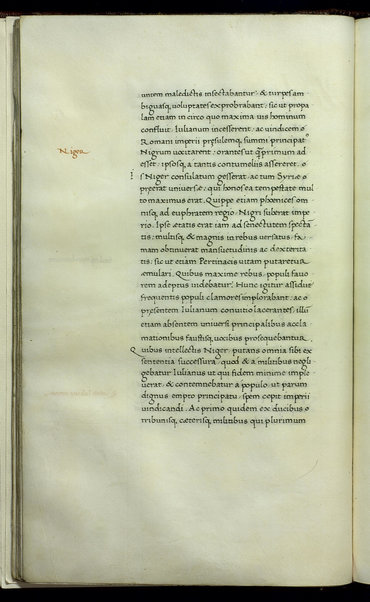 Niger
untem maledictis insectabantur · & turpes am
biguasq; voluptates exprobrabant · sic ut propa
lam etiam in circo quo maxima uis hominum
confluit · Iulianum incesserent · ac uindicem
Romani imperii presulemq; summi principatꝰ
Nigrum uocitarent · orantes ut q̃primum ad
esset · ipsosq; a tantis contumeliis assereret ·
Is Niger consulatum gesserat · ac tum Syriæ
preerat uniuersæ · qui honos ea tempestate mul
to maximus erat · Quippe etiam phœnices om
nisq; ad euphratem regio · Nigri suberat impe
rio · Ipse ætatis erat iam ad senectutem specta
tis · multisq; & magnis in rebus uersatus · fa
mam obtinuerat mansuetudinis ac dexterita
tis · sic ut etiam Pertinacis uitam putaretur
æmulari · Quibus maxime rebus · populi fauo
rem adeptus uidebatur · Hunc igitur assidue
frequentis populi clamores implorabant · ac
presentem Iulianum conuitio lacerantes · illũ
etiam absentem uniuersi principalibus accla
mationibus faustisq; uocibus prosequebantur
Quibus intellectis Niger · putans omnia sibi ex
sententia successura · quod & a militibus negli
gebatur Iulianus ut qui fidem minime imple
uerat · & contemnebatur a populo · ut parum
dignus empto principatu · spem cepit imperii
uindicandi · Ac primo quidem ex ducibus
tribunisq; cæterisq; militibus qui plurimum